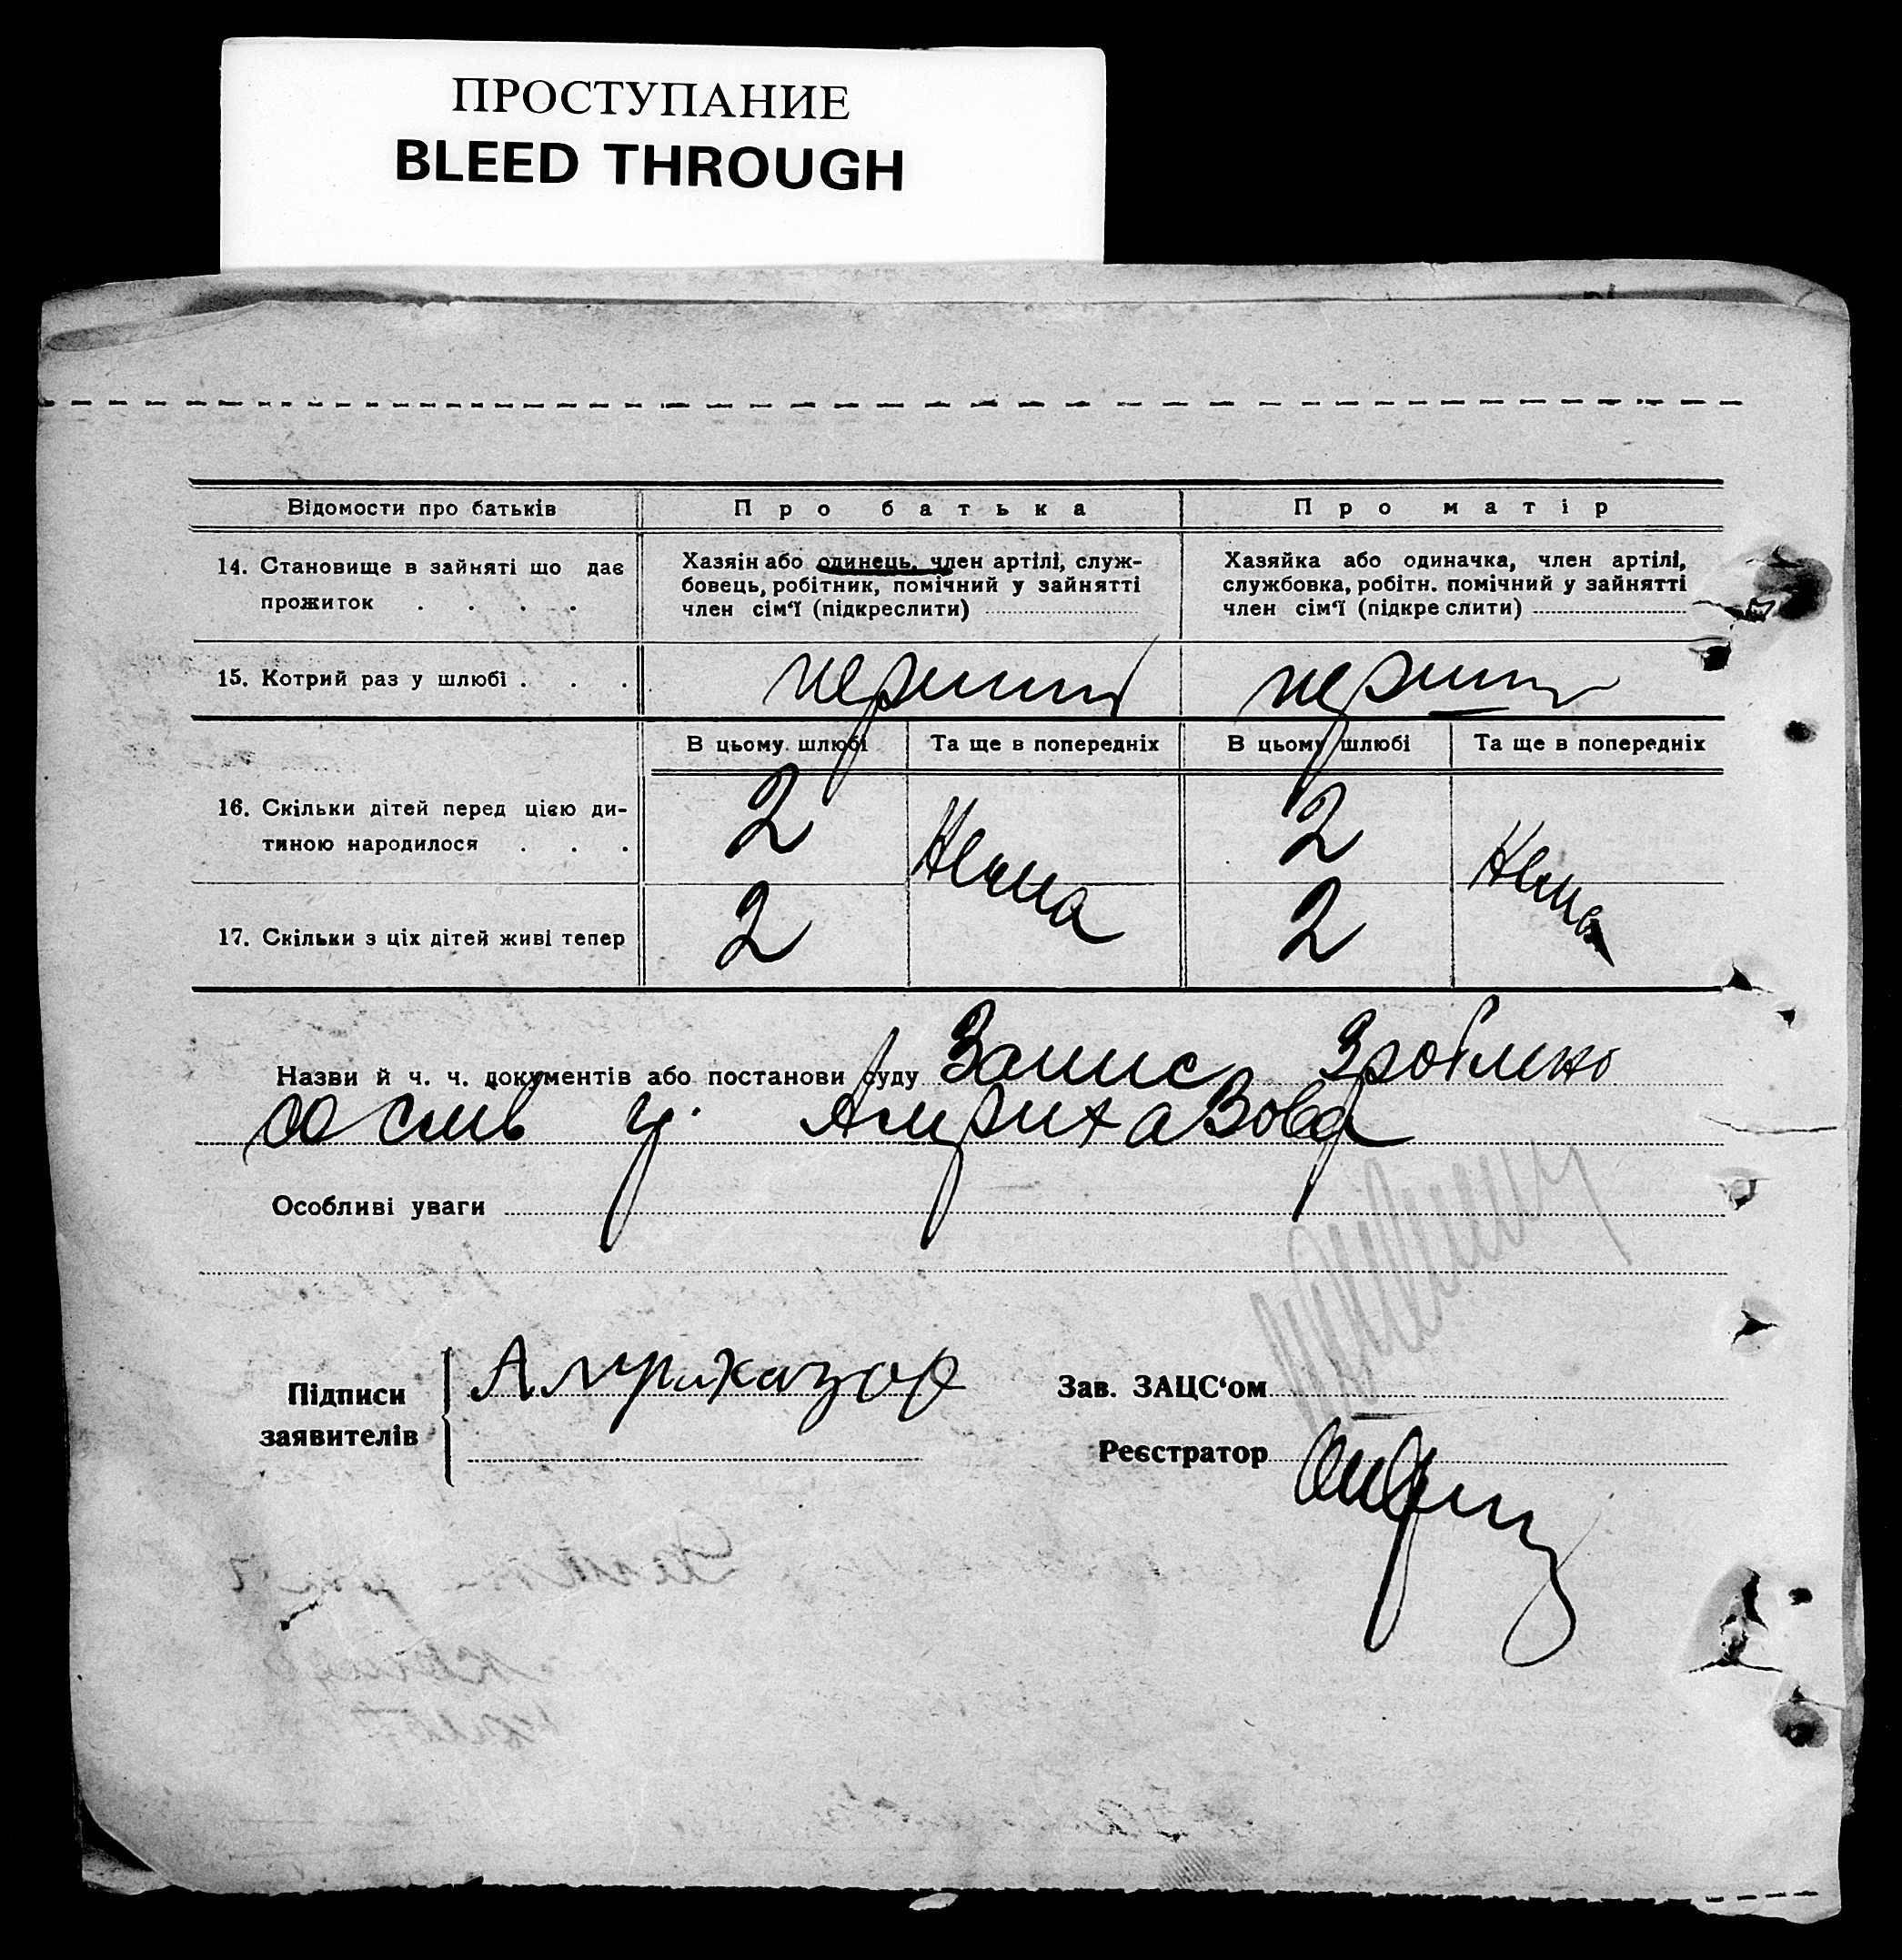 ПРОСТУПАНИЕ
BLEED THROUGH
Відомости про батьків
Про батька
Про матір
14. Становище в зайняті що дає
прожиток . . . .
Хазяін або одинець, член артілі, служ-
бовець, робітник, помічний у зайнятті
член сім‘ї (підкреслити)
Хазяйка або одиначка, член артілі,
службовка, робітн. помічний у зайнятті
член сім‘ї (підкре слити)
15. Котрий раз у шлюбі . . .
перший
перший
В цьому шлюбі
Та ще в попередніх
В цьому шлюбі
Та ще в попередніх
16. Скільки дітей перед цією ди-
тиною народилося . . .
2
Нема
2
Нема
17. Скільки з ціх дітей живі тепер
2
2
Назви й ч. ч. документів або постанови суду Запис зроблено
со слів
Особливі уваги
Підписи
заявителів
Зав. ЗАЦС‘ом
Реєстратор